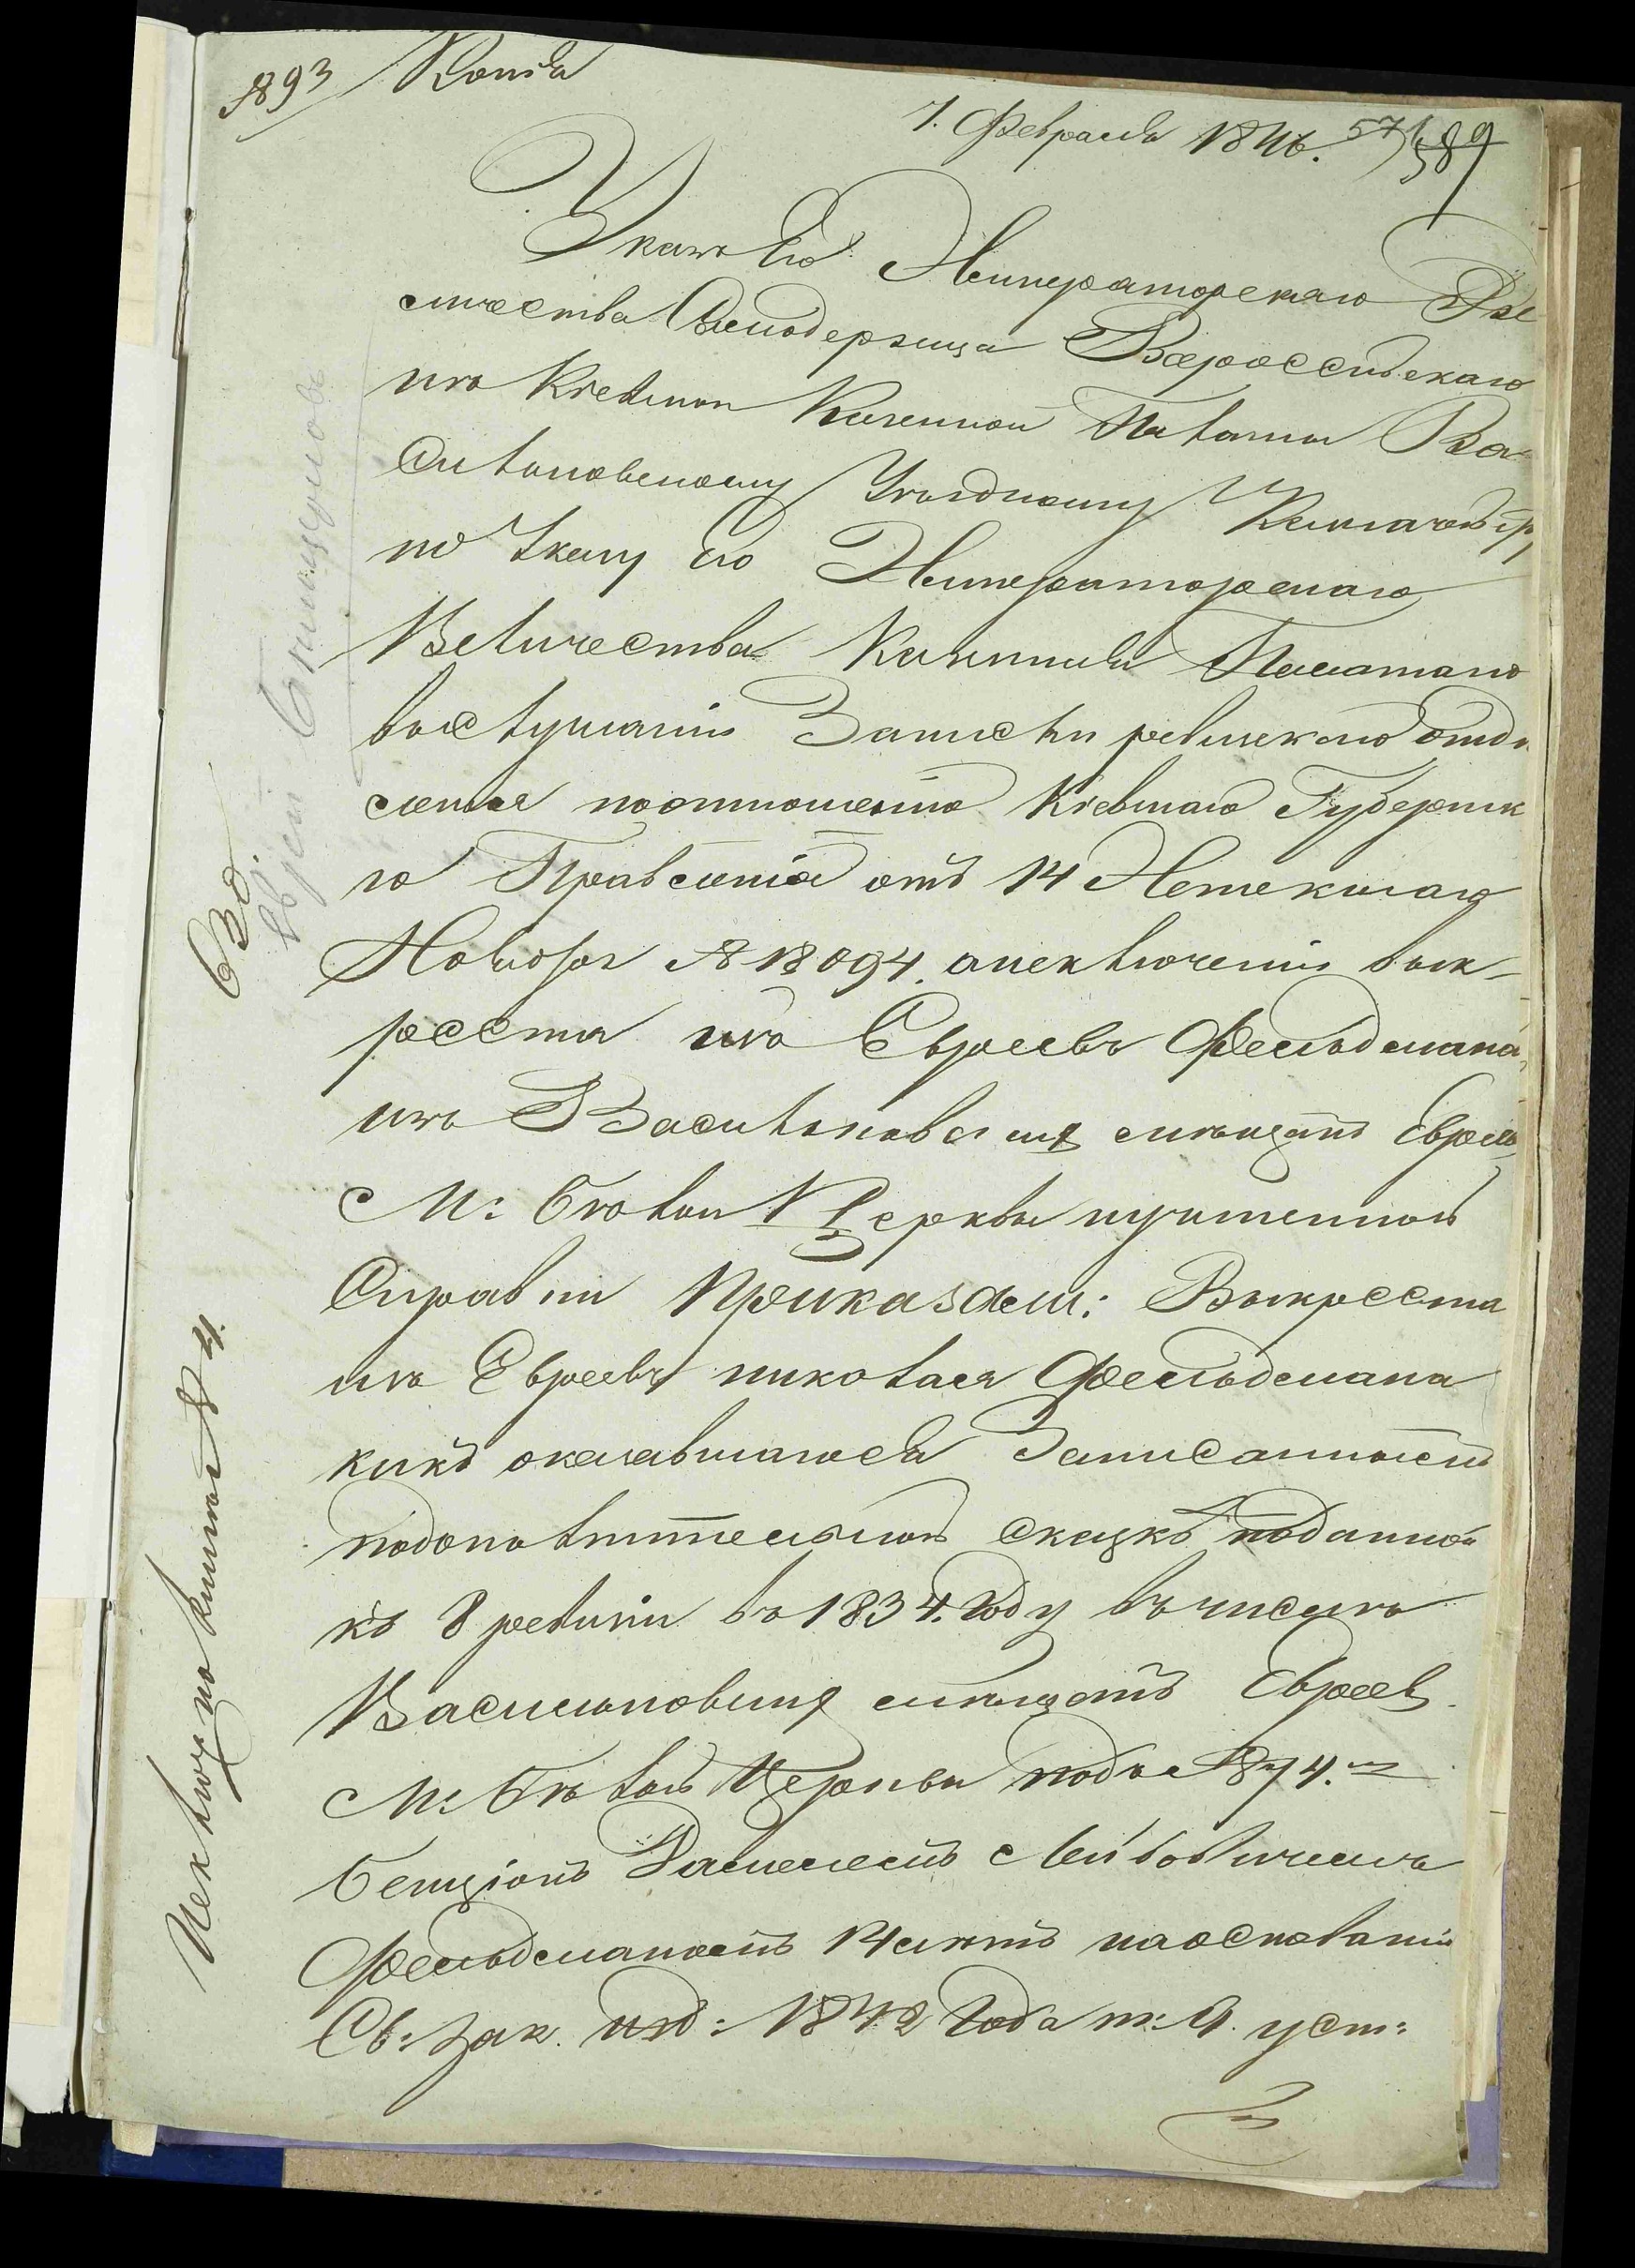 № 893 Копія
7. Февраля 1846. 57 589
Указъ Его Императорскаго Ве
личества Самодержца Всероссійскаго
изъ Кіевской Казенной Палаты Ва
сильковскому Уѣздному Казначейству
по Указу Его Императорскаго
Величества Казенная Палата по
выслушаніи Записки ревизскаго отдѣ
ленія по отношенію Кіевскаго Губернска
го Правленія отъ 14 Истекшаго
Ноября № 18094. о исключеніи вык-
реста изъ Евреевъ Фельдмана
изъ Васильковскихъ мѣщанъ Евреевъ
М: Бѣлой Церкви и учиненной
Справки Приказали: Выкреста
изъ Евреевъ Николая Фельдмана
какъ оказавшагося Записаннымъ
по дополнительной сказкѣ поданной
къ 8 ревизіи въ 1834. Году въ числѣ
Васильковскихъ мѣщанъ Евреевъ
М: Бѣлой Церкви подъ № 874.
Бенціонъ Лейбовичемъ
Фельдманомъ 14 лѣтъ на основаніи
Св: Зак. изд: 1842 Года т: 9. уст:
Исключ: по книгѣ № 4.
Евреи Бѣлоцерков